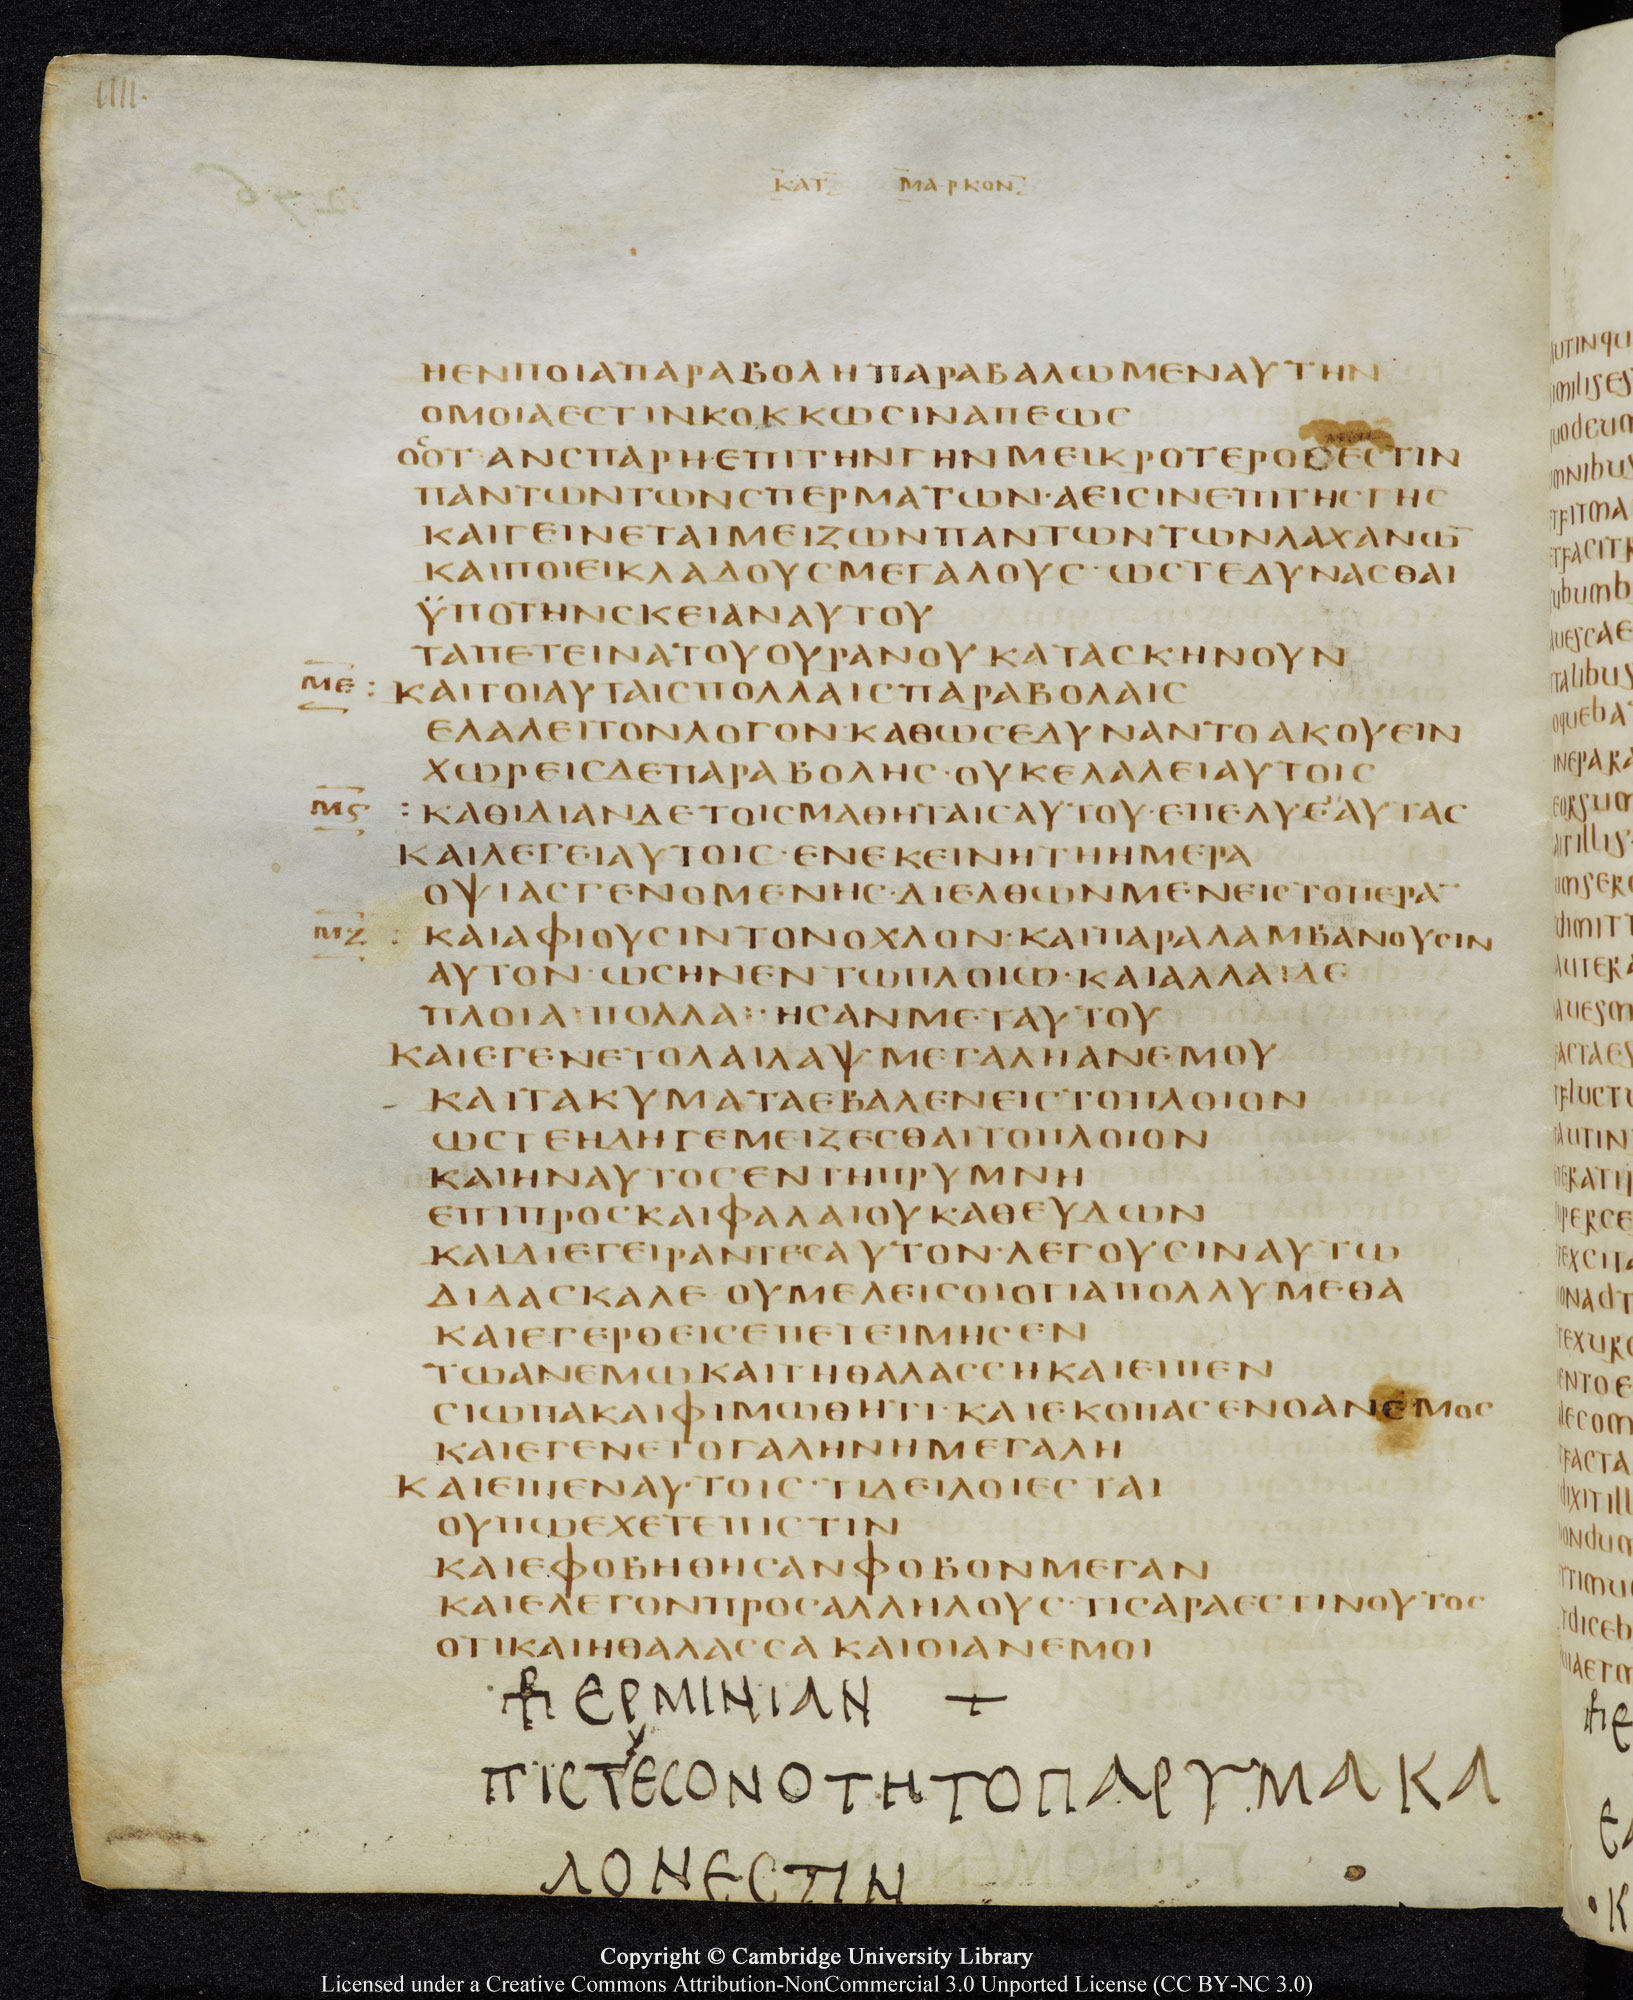 IIII.
ΚΑΤ ΜΑΡΚΟΝ
ΗΕΝΠΟΙΑΠΑΡΑΒΟΛΗΠΑΡΑΒΑΛΩΜΕΝΑΥΤΗΝ
ΟΜΟΙΑΕСΤΙΝΚΟΚΚΩСΙΝΑΠΕΩС
ΟСΟΤΑΝСΠΑΡΗΕΠΙΤΗΝΓΗΝΜΕΙΚΡΟΤΕΡΟСΕСΤΙΝ
ΠΑΝΤΩΝΤΩΝСΠΕΡΜΑΤΩΝ·ΑΕΙСΙΝΕΠΙΤΗСΓΗС
ΚΑΙΓΕΙΝΕΤΑΙΜΕΙΖΩΝΠΑΝΤΩΝΤΩΝΛΑΧΑΝΩ̅
ΚΑΙΠΟΙΕΙΚΛΑΔΟΥСΜΕΓΑΛΟΥС·ΩСΤΕΔΥΝΑСΘΑΙ
ΫΠΟΤΗΝСΚΕΙΑΝΑΥΤΟΥ
ΤΑΠΕΤΕΙΝΑΤΟΥΟΥΡΑΝΟΥΚΑΤΑСΚΗΝΟΥΝ
ΜΕ : ΚΑΙΤΟΙΑΥΤΑΙСΠΟΛΛΑΙСΠΑΡΑΒΟΛΑΙС
ΕΛΑΛΕΙΤΟΝΛΟΓΟΝ·ΚΑΘΩСΕΔΥΝΑΝΤΟΑΚΟΥΕΙΝ
ΧΩΡΕΙСΔΕΠΑΡΑΒΟΛΗС·ΟΥΚΕΛΑΛΕΙΑΥΤΟΙС
Μϛ : ΚΑΘΙΔΙΑΝΔΕΤΟΙСΜΑΘΗΤΑΙСΑΥΤΟΥ·ΕΠΕΛΥΕ΄ΑΥΤΑС
ΚΑΙΛΕΓΕΙΑΥΤΟΙС·ΕΝΕΚΕΙΝΗΤΗΗΜΕΡΑ
ΟΨΙΑСΓΕΝΟΜΕΝΗС·ΔΙΕΛΘΩΜΕΝΕΙСΤΟΠΕΡΑ̅
ΜΖ : ΚΑΙΑΦΙΟΥСΙΝΤΟΝΟΧΛΟΝ·ΚΑΙΠΑΡΑΛΑΜΒΑΝΟΥСΙΝ
ΑΥΤΟΝ·ΩСΗΝΕΝΤΩΠΛΟΙΩ·ΚΑΙΑΛΛΑΙΔΕ
ΠΛΟΙΑ·ΠΟΛΛΑ:·ΗСΑΝΜΕΤΑΥΤΟΥ
ΚΑΙΕΓΕΝΕΤΟΛΑΙΛΑΨ·ΜΕΓΑΛΗΑΝΕΜΟΥ
ΚΑΙΤΑΚΥΜΑΤΑΕΒΑΛΕΝΕΙСΤΟΠΛΟΙΟΝ
ΩСΤΕΗΔΗΓΕΜΕΙΖΕСΘΑΙΤΟΠΛΟΙΟΝ
ΚΑΙΗΝΑΥΤΟСΕΝΤΗΠΡΥΜΝΗ
ΕΠΙΠΡΟСΚΑΙΦΑΛΑΙΟΥΚΑΘΕΥΔΩΝ
ΚΑΙΔΙΕΓΕΙΡΑΝΤΕСΑΥΤΟΝ·ΛΕΓΟΥСΙΝΑΥΤΩ
ΔΙΔΑСΚΑΛΕ·ΟΥΜΕΛΕΙСΟΙΟΤΙΑΠΟΛΛΥΜΕΘΑ
ΚΑΙΕΓΕΡΘΕΙСΕΠΕΤΕΙΜΗСΕΝ
ΤΩΑΝΕΜΩΚΑΙΤΗΘΑΛΑССΗΚΑΙΕΙΠΕΝ
СΙΩΠΑΚΑΙΦΙΜΩΘΗΤΙ·ΚΑΙΕΚΟΠΑСΕΝΟΑΝΕΜΟС
ΚΑΙΕΓΕΝΕΤΟΓΑΛΗΝΗΜΕΓΑΛΗ
ΚΑΙΕΙΠΕΝΑΥΤΟΙС·ΤΙΔΕΙΛΟΙΕСΤΑΙ
ΟΥΠΩΕΧΕΤΕΠΙСΤΙΝ
ΚΑΙΕΦΟΒΗΘΗСΑΝΦΟΒΟΝΜΕΓΑΝ
ΚΑΙΕΛΕΓΟΝΠΡΟСΑΛΛΗΛΟΥС·ΤΙСΑΡΑΕСΤΙΝΟΥΤΟС
ΟΤΙΚΑΙΗΘΑΛΑССΑΚΑΙΟΙΑΝΕΜΟΙ
ΕΡΜΙΝΙΑΝ +
ΠΙСΤΥΕСΟΝΟΤΗΤΟΠΑΡΥΜΑΚΑ
ΛΟΝΕСΤΙΝ
Copyright © Cambridge University Library
Licensed under a Creative Commons Attribution-NonCommercial 3.0 Unported License (CC BY-NC 3.0)